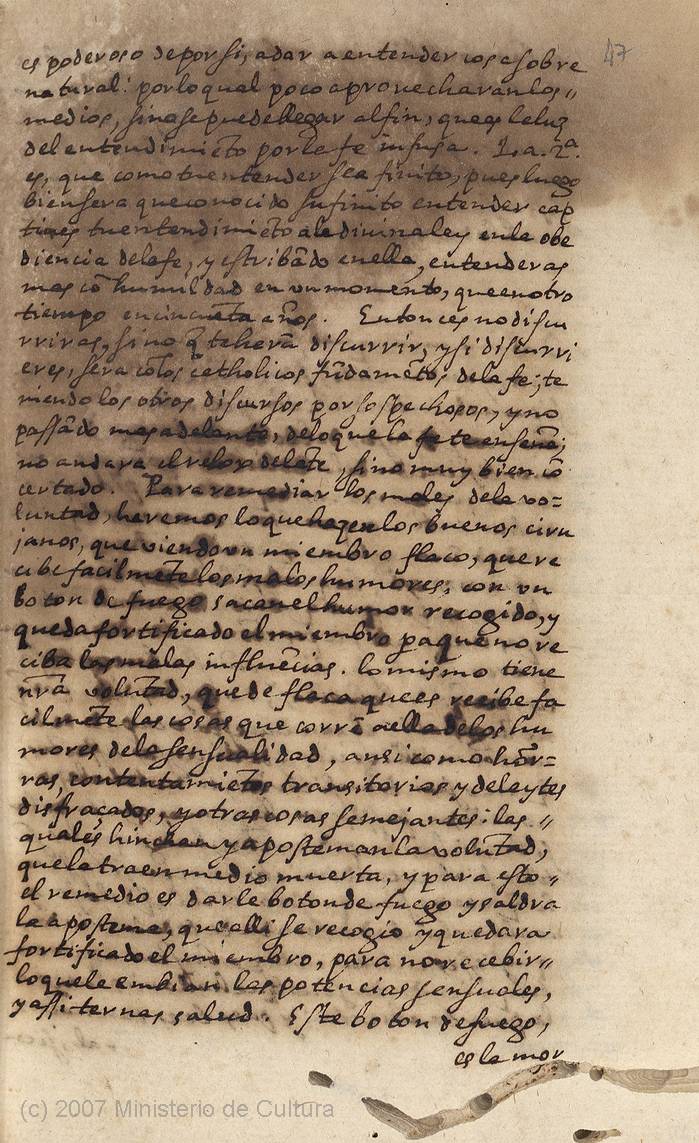 47
es poderoso de por si, a dar a entender cosa sobre
natural: por lo qual poco aprovecharan los〃
medios, sino se puede llegar al fin, que es le luz
del entendimiẽto por la fe infusa. La 2ª.
es, que como tu entender sea finito, pues luego
bien sera que conocido su finito entender cap
tives tu entendimiẽto a la divina ley en la obe
diencia de la fe, y estribãdo en ella, entenderas
mas cõ humildad en un momento, que en otro
tiempo en cincuẽta años. Entonces no discu
rriras, sino q̃ te harã discurrir, y si discurri
eres, sera cõ los catholicos fũdamẽtos de la fe; te
niendo los otros discursos por sospechosos, y no
passãdo mas adelante, de lo que la fe te enseña;
no andara el relox delãte, sino muy bien cõ
certado. Para remediar los males de la vo=
luntad, haremos lo que hazen los buenos ciru
janos, que viendo un miembro flaco, que re
cibe facilmẽte los malos humores, con un
boton de fuego sacan el humor recogido, y
queda fortificado el miembro para que no re
ciba las malas influẽcias. lo mismo tiene
nrã volũtad, que de flaca que es recibe fa
cilmẽte las cosas que corrẽ a ella de los hu
mores de la sensualidad, ansi como hõr=
ras, contentamiẽtos transitorios y deleytes
disfraçados, y otras cosas semejantes: las〃
quales hinchan y aposteman la volũtad,
que la traen medio muerta, y para esto〃
el remedio es darle boton de fuego y saldra
la apostema, que alli se recogio y quedara
fortificado el miembro, para no recebir〃
lo que le embian las potencias sensuales,
y assi ternas salud. Este boton de fuego,
es la mor
(c) 2007 Ministerio de Cultura